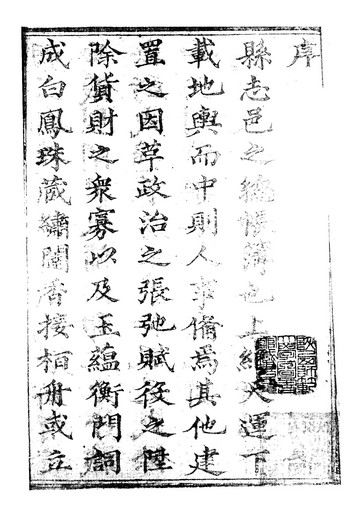 序
縣志邑之 簿也上 天運下
載地輿而中則人事備焉其他建
置之因革政治之張弛賦役之陞
除貨財之衆寡以及玉蘊衡門詞
成白鳳珠藏繡閨香接柏舟或立